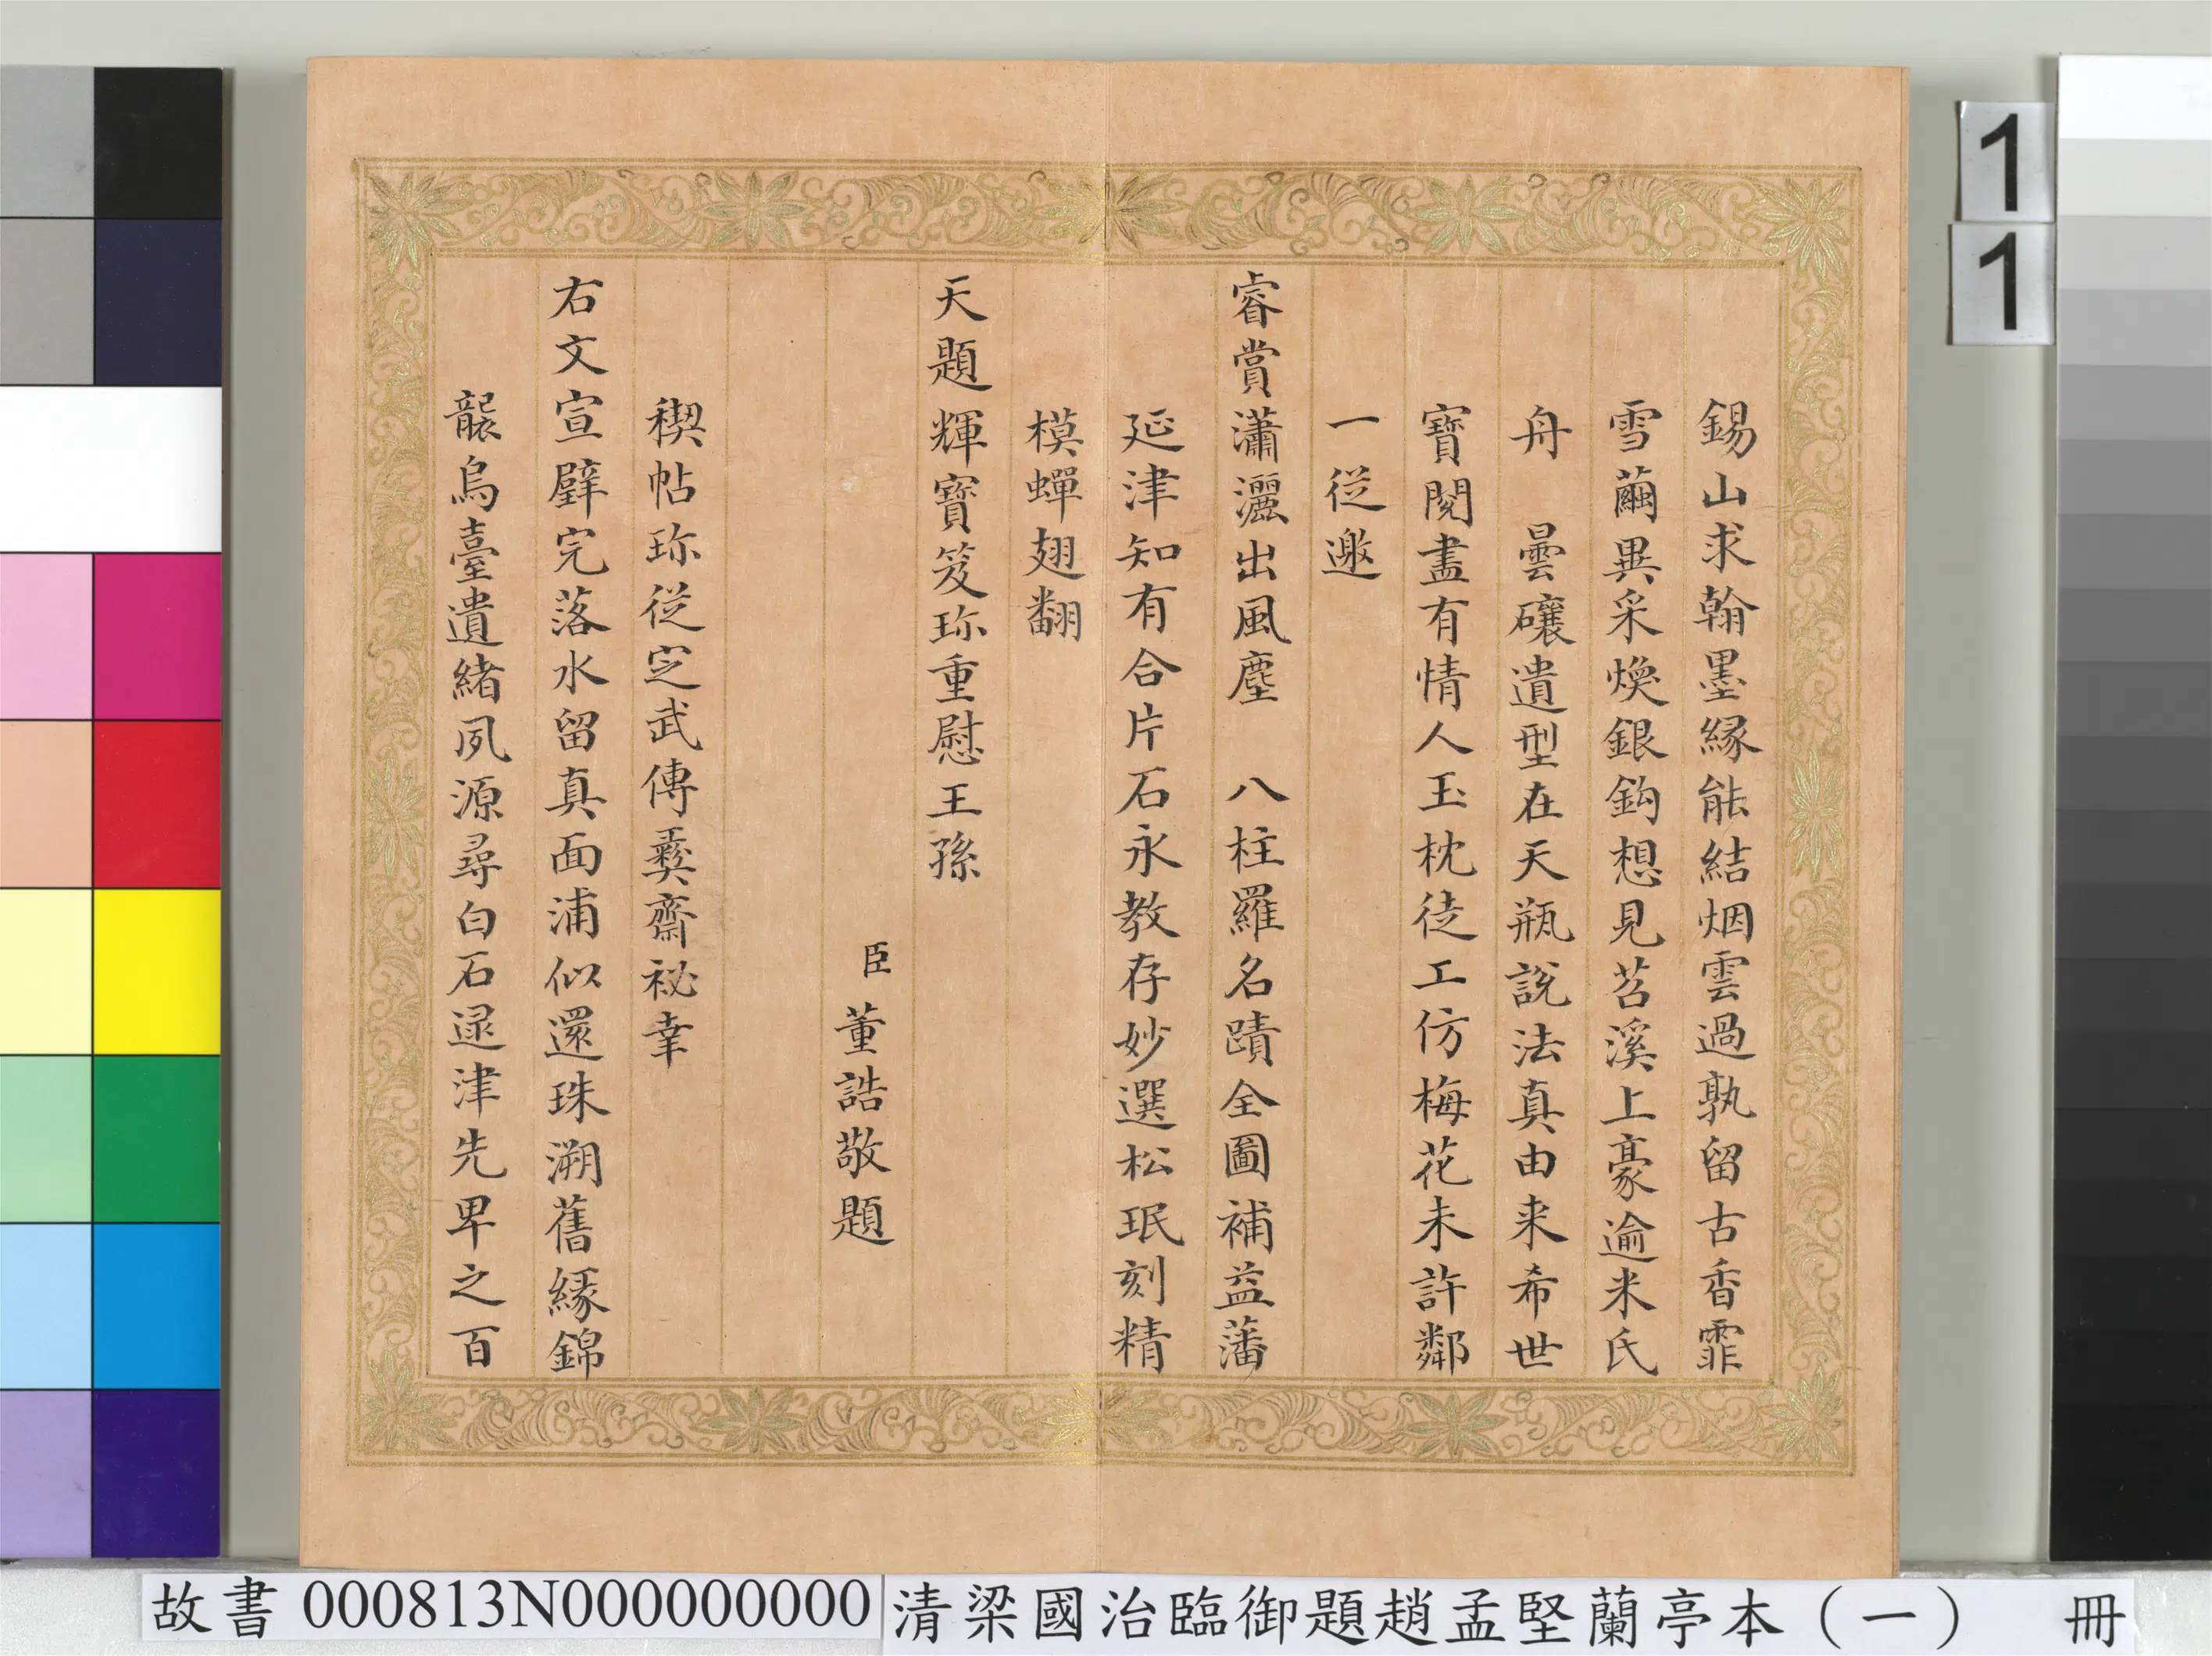 錫山求翰墨縁能結烟雲過孰留古香霏
雪繭異采煥銀鈎想見苕溪上豪逾米氏
舟 曇礲遺型在天瓶說法真由来希世
寶閱盡有情人玉枕徒工仿梅花未許鄰
一從邀
睿賞瀟灑出風塵 八柱羅名蹟全圖補益藩
延津知有合片石永教存妙選松珉刻精
模蟬翅翻
天題輝寶笈珎重慰王孫
臣董誥敬題
稧帖珎從㝎武傳彞齋祕幸
右文宣璧完落水留真面浦似還珠溯舊緣錦
襲烏臺遺緒夙源尋白石逯津先卑之百
11
故書000813N000000000 清梁國治臨御題趙孟堅蘭亭本（一） 冊